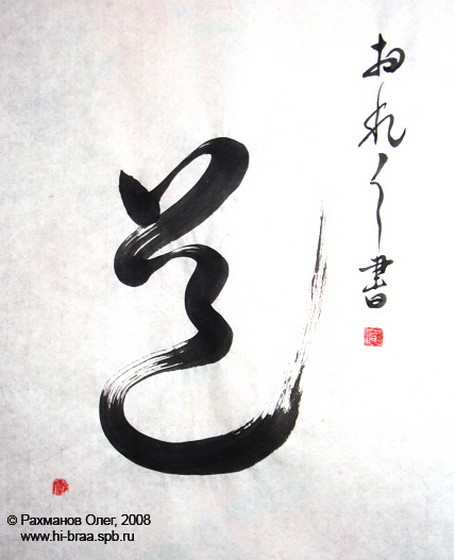 道
書
© Рахманов Олег, 2008
www.hi-braa.spb.ru